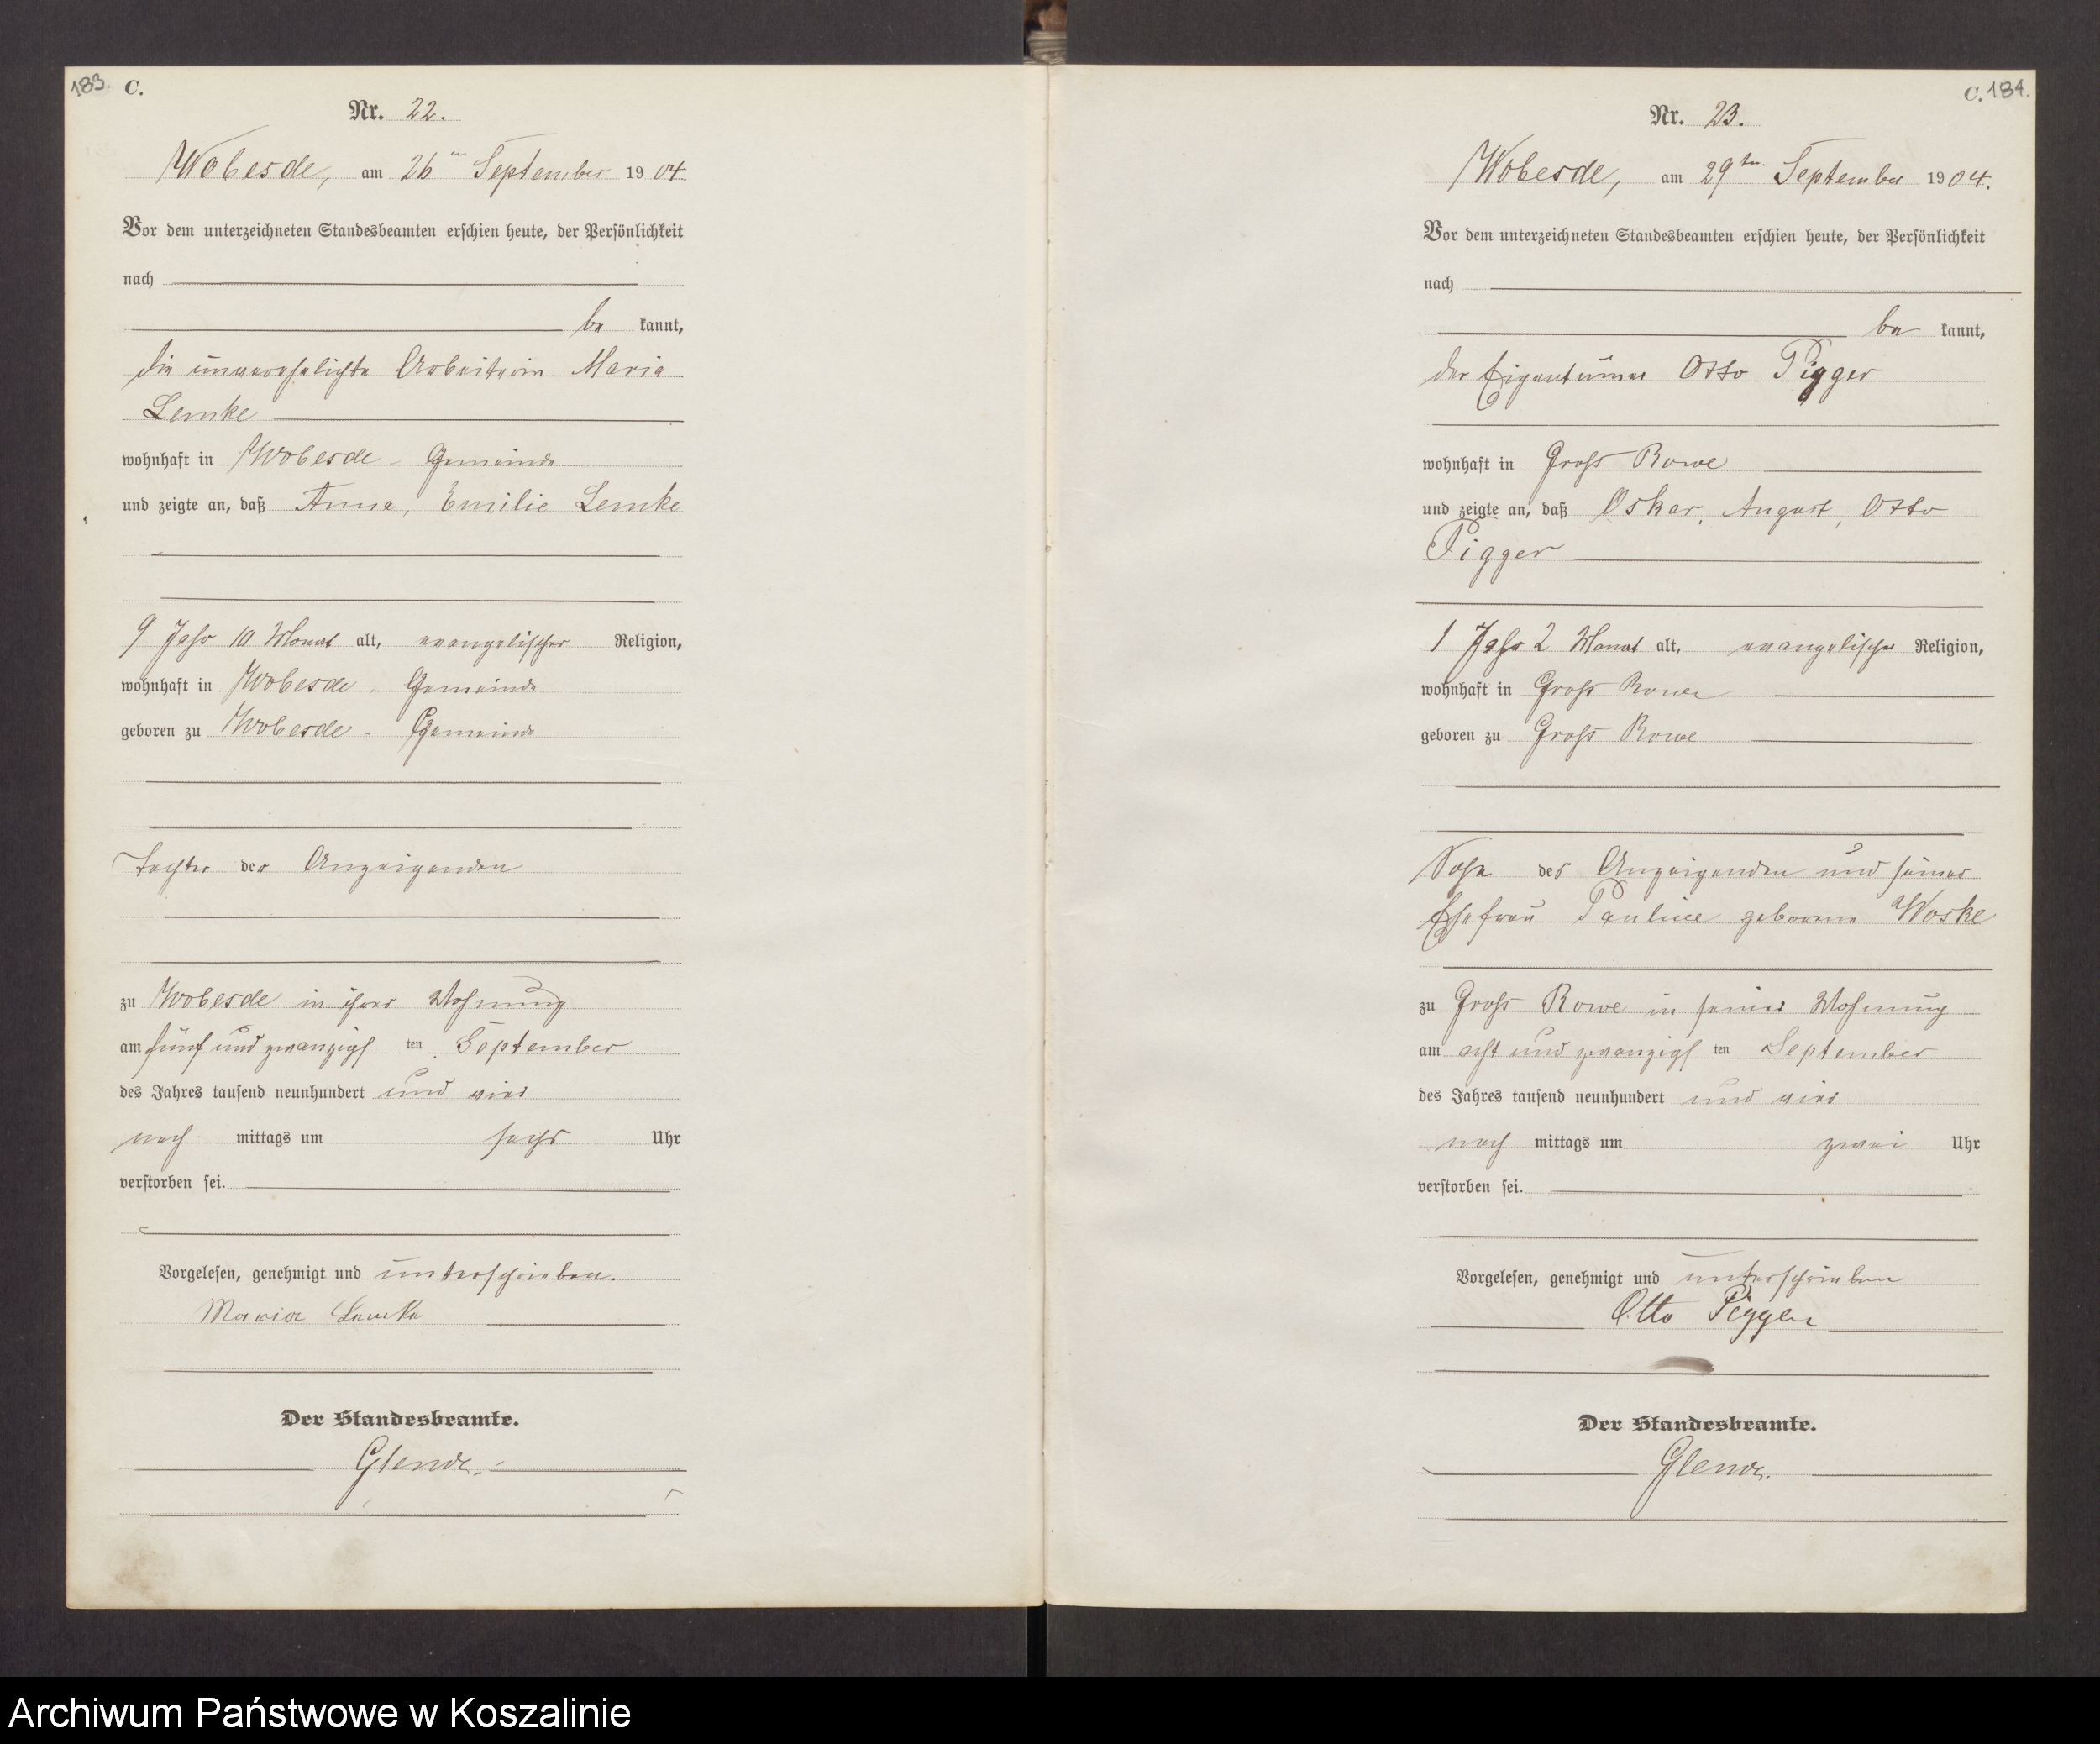 183. C.
Nr. 22.
Wobesde, am 26ten September 1904.
Vor dem unterzeichneten Standesbeamten erschien heute, der Persönlichkeit
nach
be kannt,
die unverehelichte Arbeiterin Maria
Lemke
wohnhaft in Wobesde - Gemeinde
und zeigte an, daß Anna, Emilie Lemke
9 Jahr 10 Monat alt, evangelischer Religion,
wohnhaft in Wobesde - Gemeinde
geboren zu Wobesde - Gemeinde
Tochter der Anzeigenden
zu Wobesde in ihrer Wohnung
am fünf und zwanzigs ten September
des Jahres tausend neunhundert und vier
nach mittags um sechs Uhr
verstorben sei.
Vorgelesen, genehmigt und unterschrieben.
Maria Lemke
Der Standesbeamte.
C. 184.
Nr. 23.
Wobesde, am 29ten September 1904.
Vor dem unterzeichneten Standesbeamten erschien heute, der Persönlichkeit
nach
be kannt,
der Eigentümer Otto Pigger
wohnhaft in Groß Rowe
und zeigte an, daß Oskar, August, Otto
Pigger
1 Jahr 2 Monat alt, evangelischer Religion,
wohnhaft in Groß Rowe
geboren zu Groß Rowe
Sohn des Anzeigenden und seiner
Ehefrau Pauline geborene Woske
zu Groß Rowe in seiner Wohnung
am acht und zwanzigs ten September
des Jahres tausend neunhundert und vier
nach mittags um zwei Uhr
verstorben sei.
Vorgelesen, genehmigt und unterschrieben
Otto Pigger
Der Standesbeamte.
Archiwum Państwowe w Koszalinie